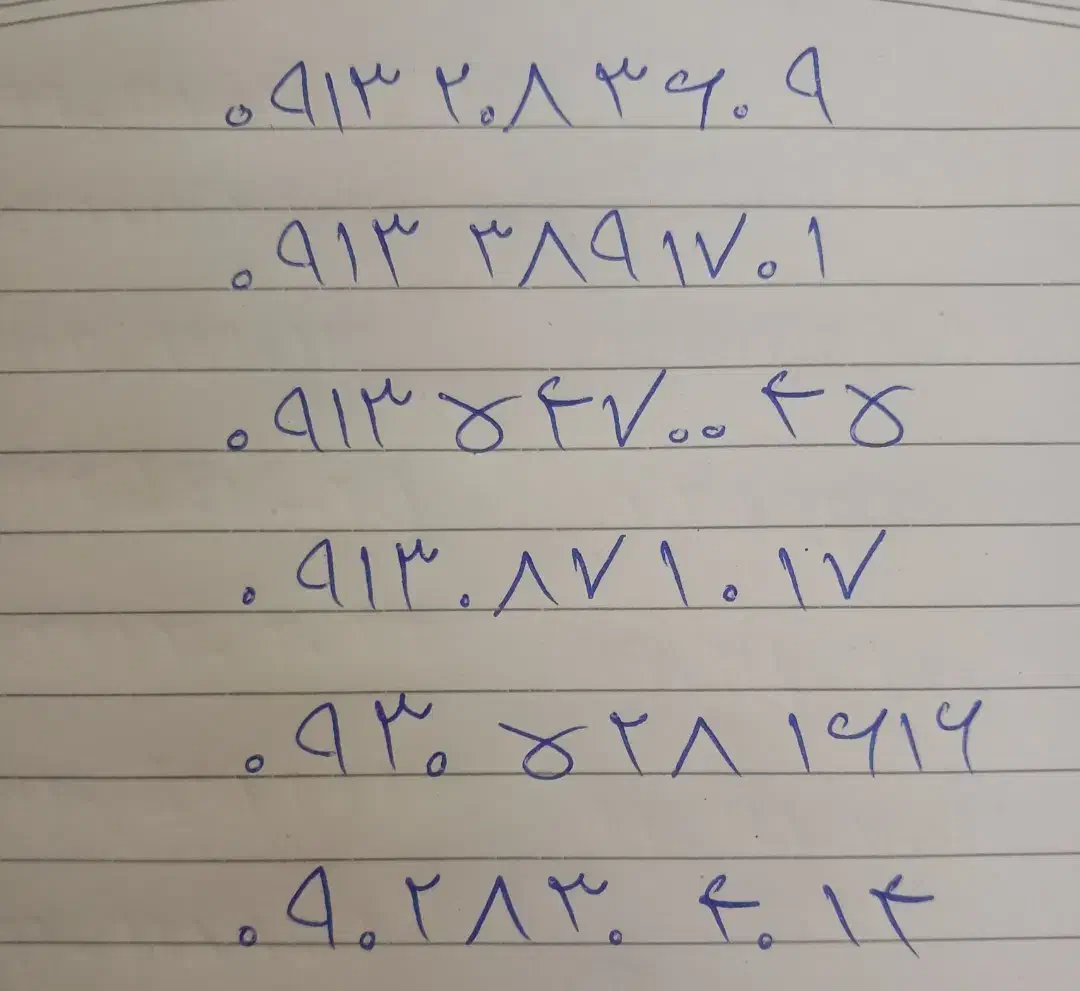 ۰۹۱۳ ۲۰۸ ۳۶۰۹
۰۹۱۳ ۳۸۹ ۱۷۰۱
۰۹۱۳ ۵۴۷ ۰۰۴۵
۰۹۱۳۰۸۷۱۰۱۷
۰۹۳۰ ۵۲۸ ۱۶۱۶
۰۹۰۲۸۳۰ ۴۰۱۴